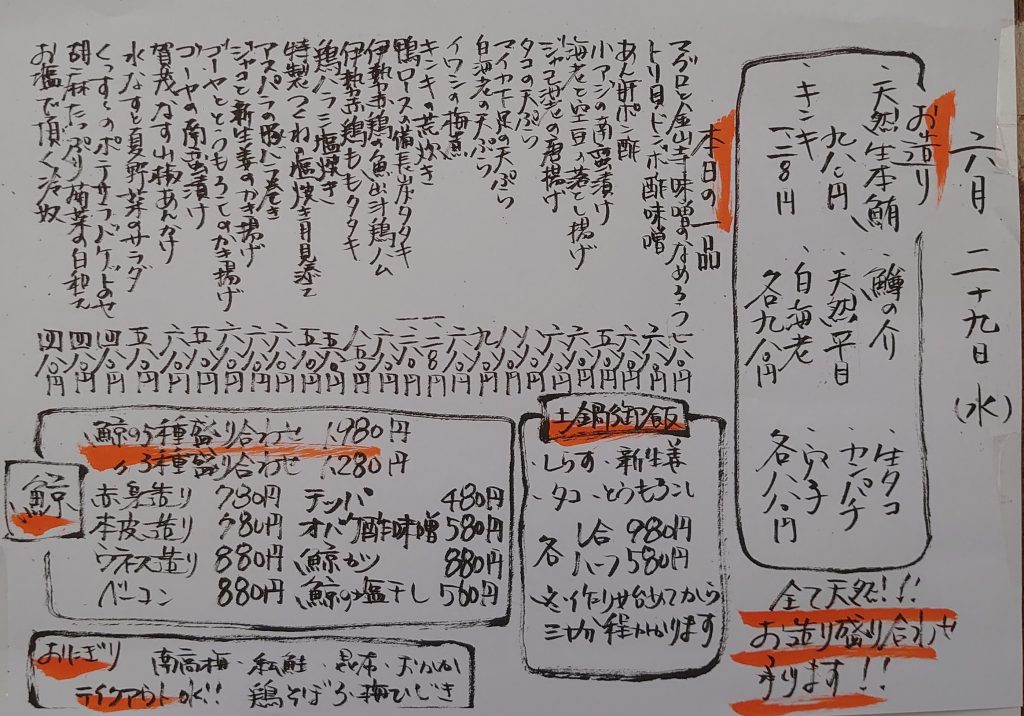 六月二十九日(水)
お造り
・天然生本鮪
九八〇円
・キンキ
一二三八〇円
・鱒の介
・天然平目
・白海老
各九八〇円
・生タコ
・カンパチ
・穴子
各八八〇円
全て天然!!
お造り盛り合わせ
承ります!!
本日の一品
マグロと金山寺味噌のなめろう 七八〇円
トリ貝ドンポ酢味噌 六八〇円
あん肝ポン酢 六八〇円
小アジの南蛮漬け 六八〇円
海老と空豆の落とし揚げ
ジャコ海老の唐揚げ
タコの天ぷら
マイカ下足の天ぷら
白海老の天ぷら
イワシの梅煮
キンキの荒炊き
鴨ロースの備長炭タタキ
伊勢赤鶏の魚出汁鶏ハム
伊勢赤鶏ももタタキ
鶏ハラミ塩焼き
特製つくねの塩焼き月見添え
アスパラの豚バラ巻き
ジャコと新生姜のかき揚げ
ゴーヤととうもろこしのかき揚げ
ゴーヤの南蛮漬け
賀茂なす山椒あんかけ
水なすと夏野菜のサラダ 五八〇円
くっすぅのポテサラバゲットのせ 四八〇円
胡麻たっぷり菊菜の白和え 四八〇円
お塩で頂く冷奴 四八〇円
土鍋御飯
・しらす・新生姜
・タコ・とうもろこし
各 1合 980円
ハーフ 580円
※作り始めてから
三十分程かかります
鯨
鯨の5種盛り合わせ 1,980円
〃3種盛り合わせ 1,280円
赤身造り 780円 テッパ 480円
本皮造り 780円 オバケ酢味噌 580円
ウネス造り 880円 鯨カツ 880円
ベーコン 880円 鯨の塩干し 580円
おにぎり 南高梅・紅鮭・昆布・おかか
テイクアウトOK!! 鶏そぼろ・梅ひじき